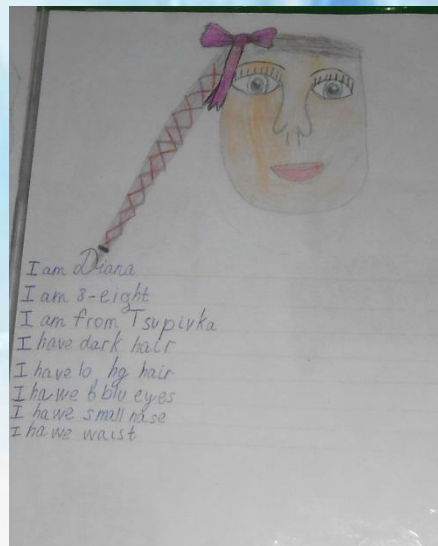 I am Diana
I am 8-eight
I am from Tsupivka
I have dark hair
I have lo hg hair
I hawe b blu eyes
I hawe small nase
I hawe waist